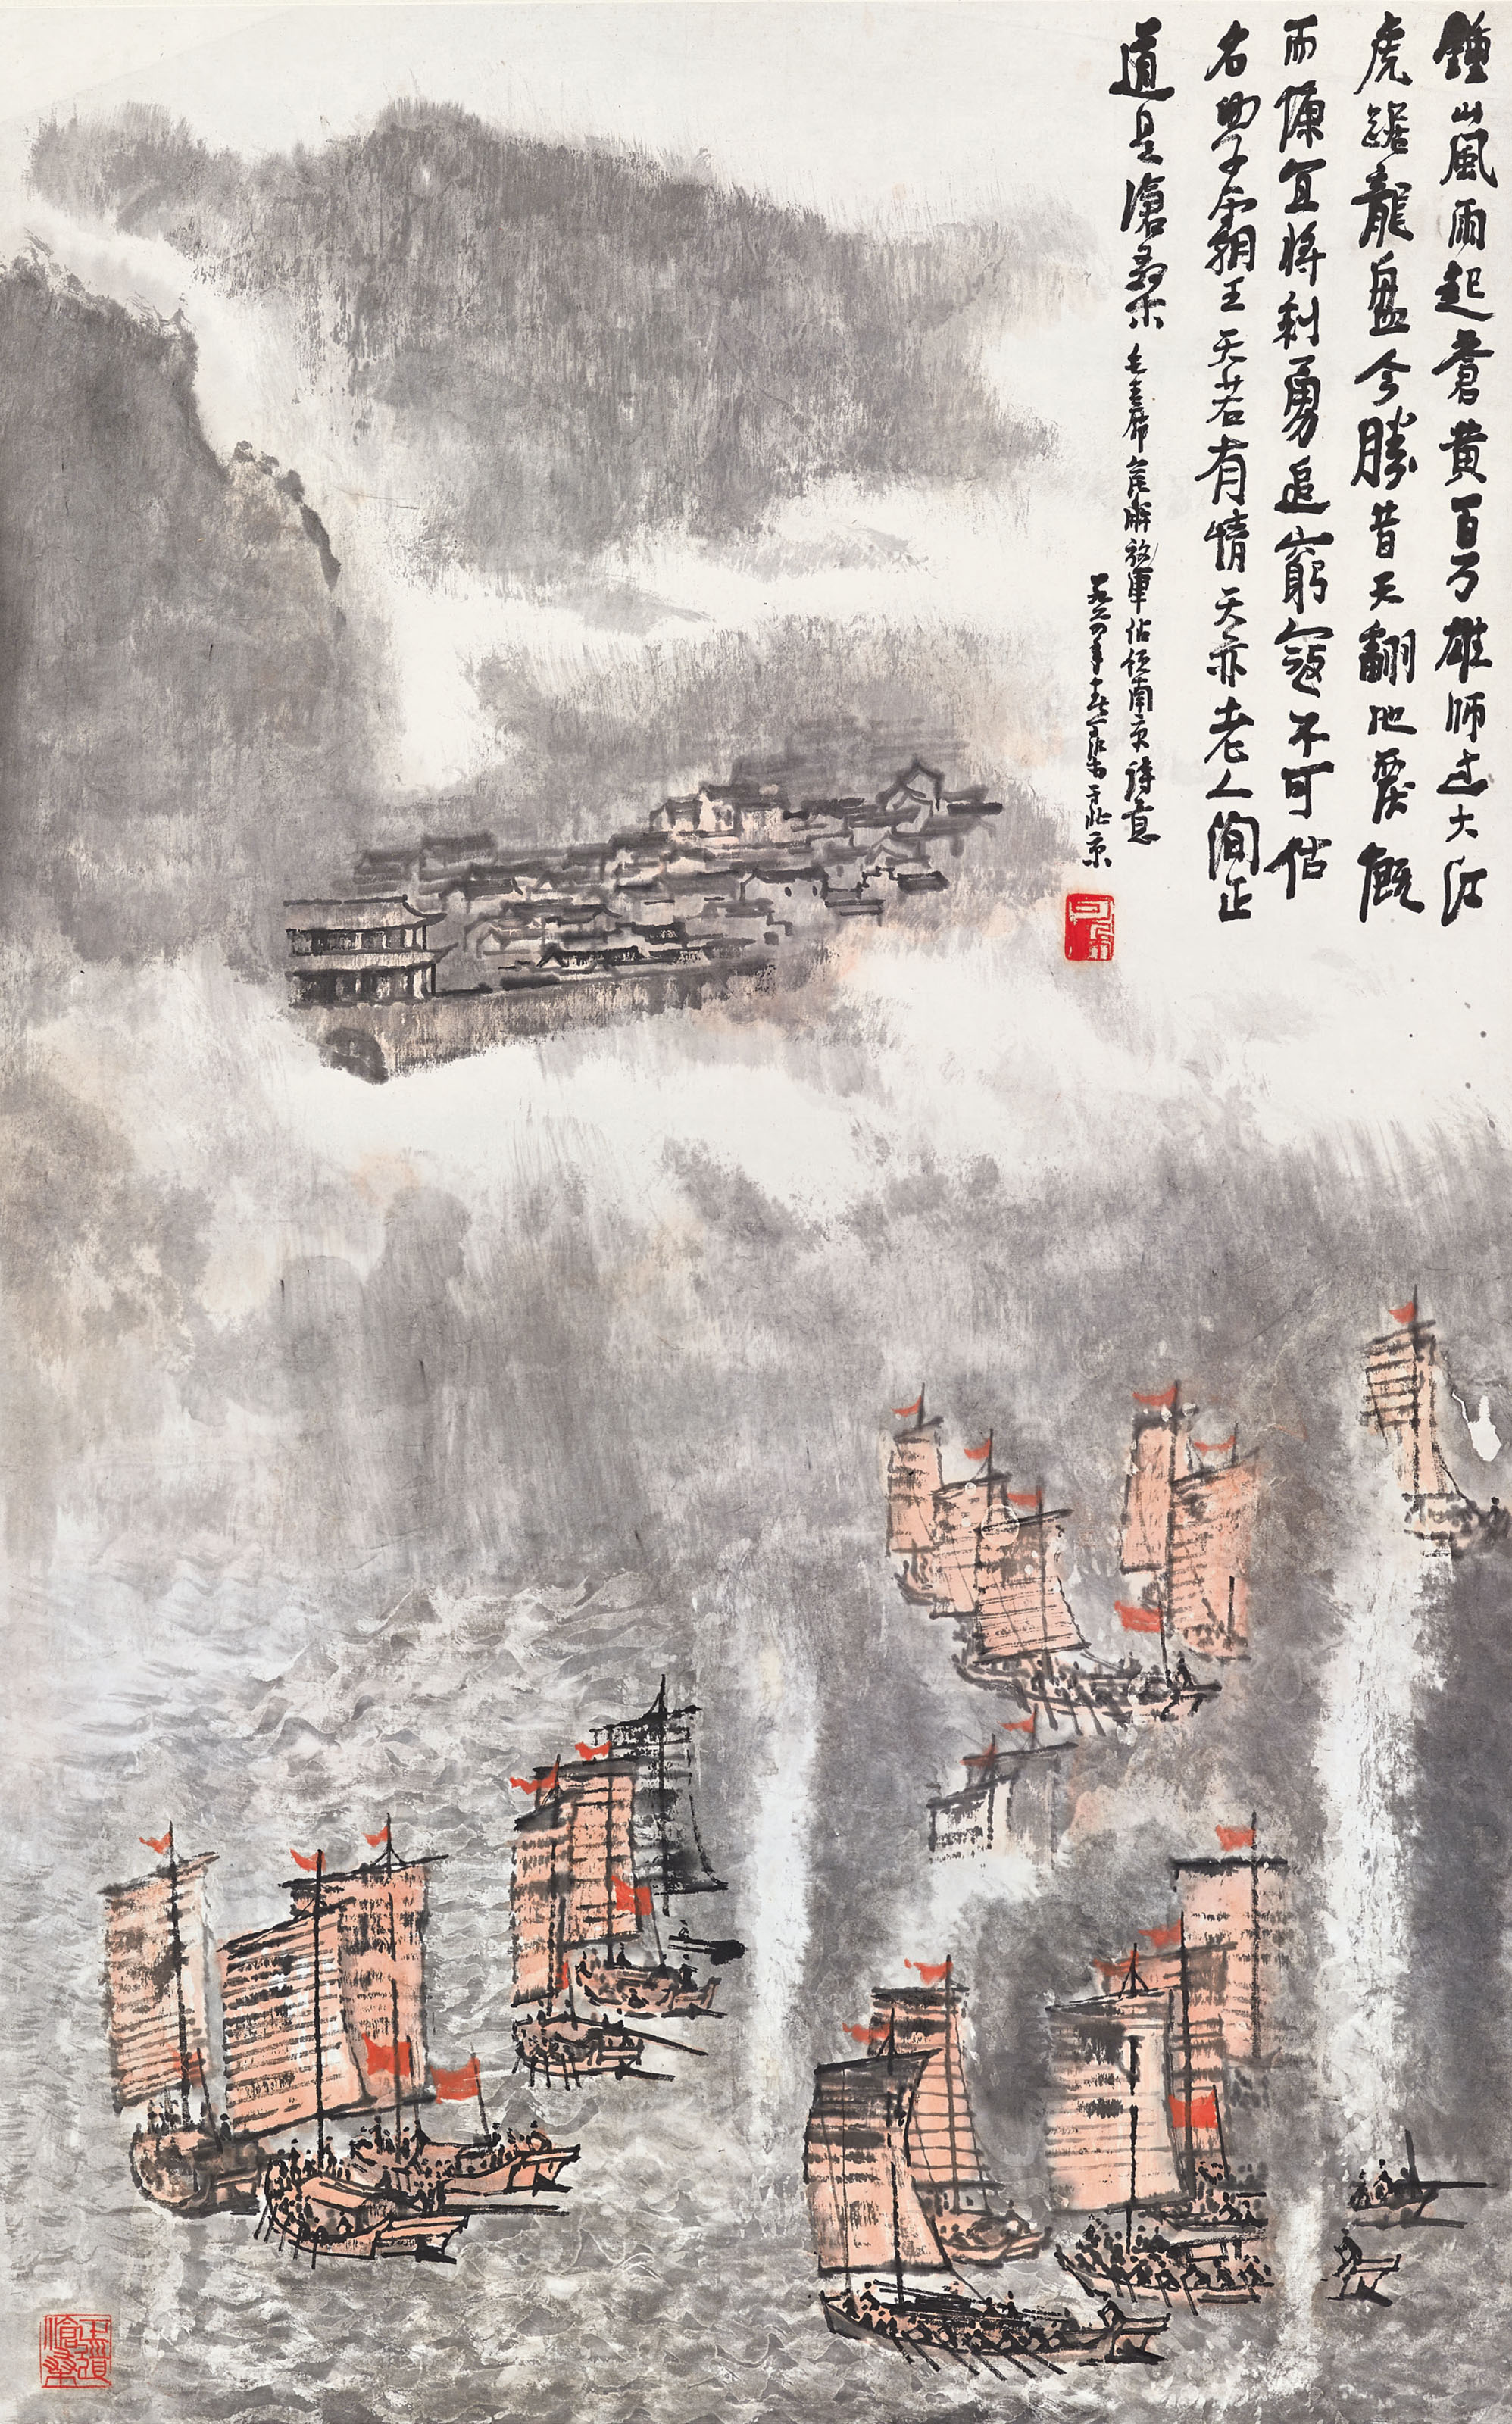 鍾山風雨起蒼黃百万雄師过大江
虎踞龍盤今勝昔天翻地覆慨
而慷宜將剩勇追窮寇不可沽
名學霸王天若有情天亦老人間正
道是滄桑 毛主席人民解放軍佔領南京詩意
一九六四年 可染作于北京
可染